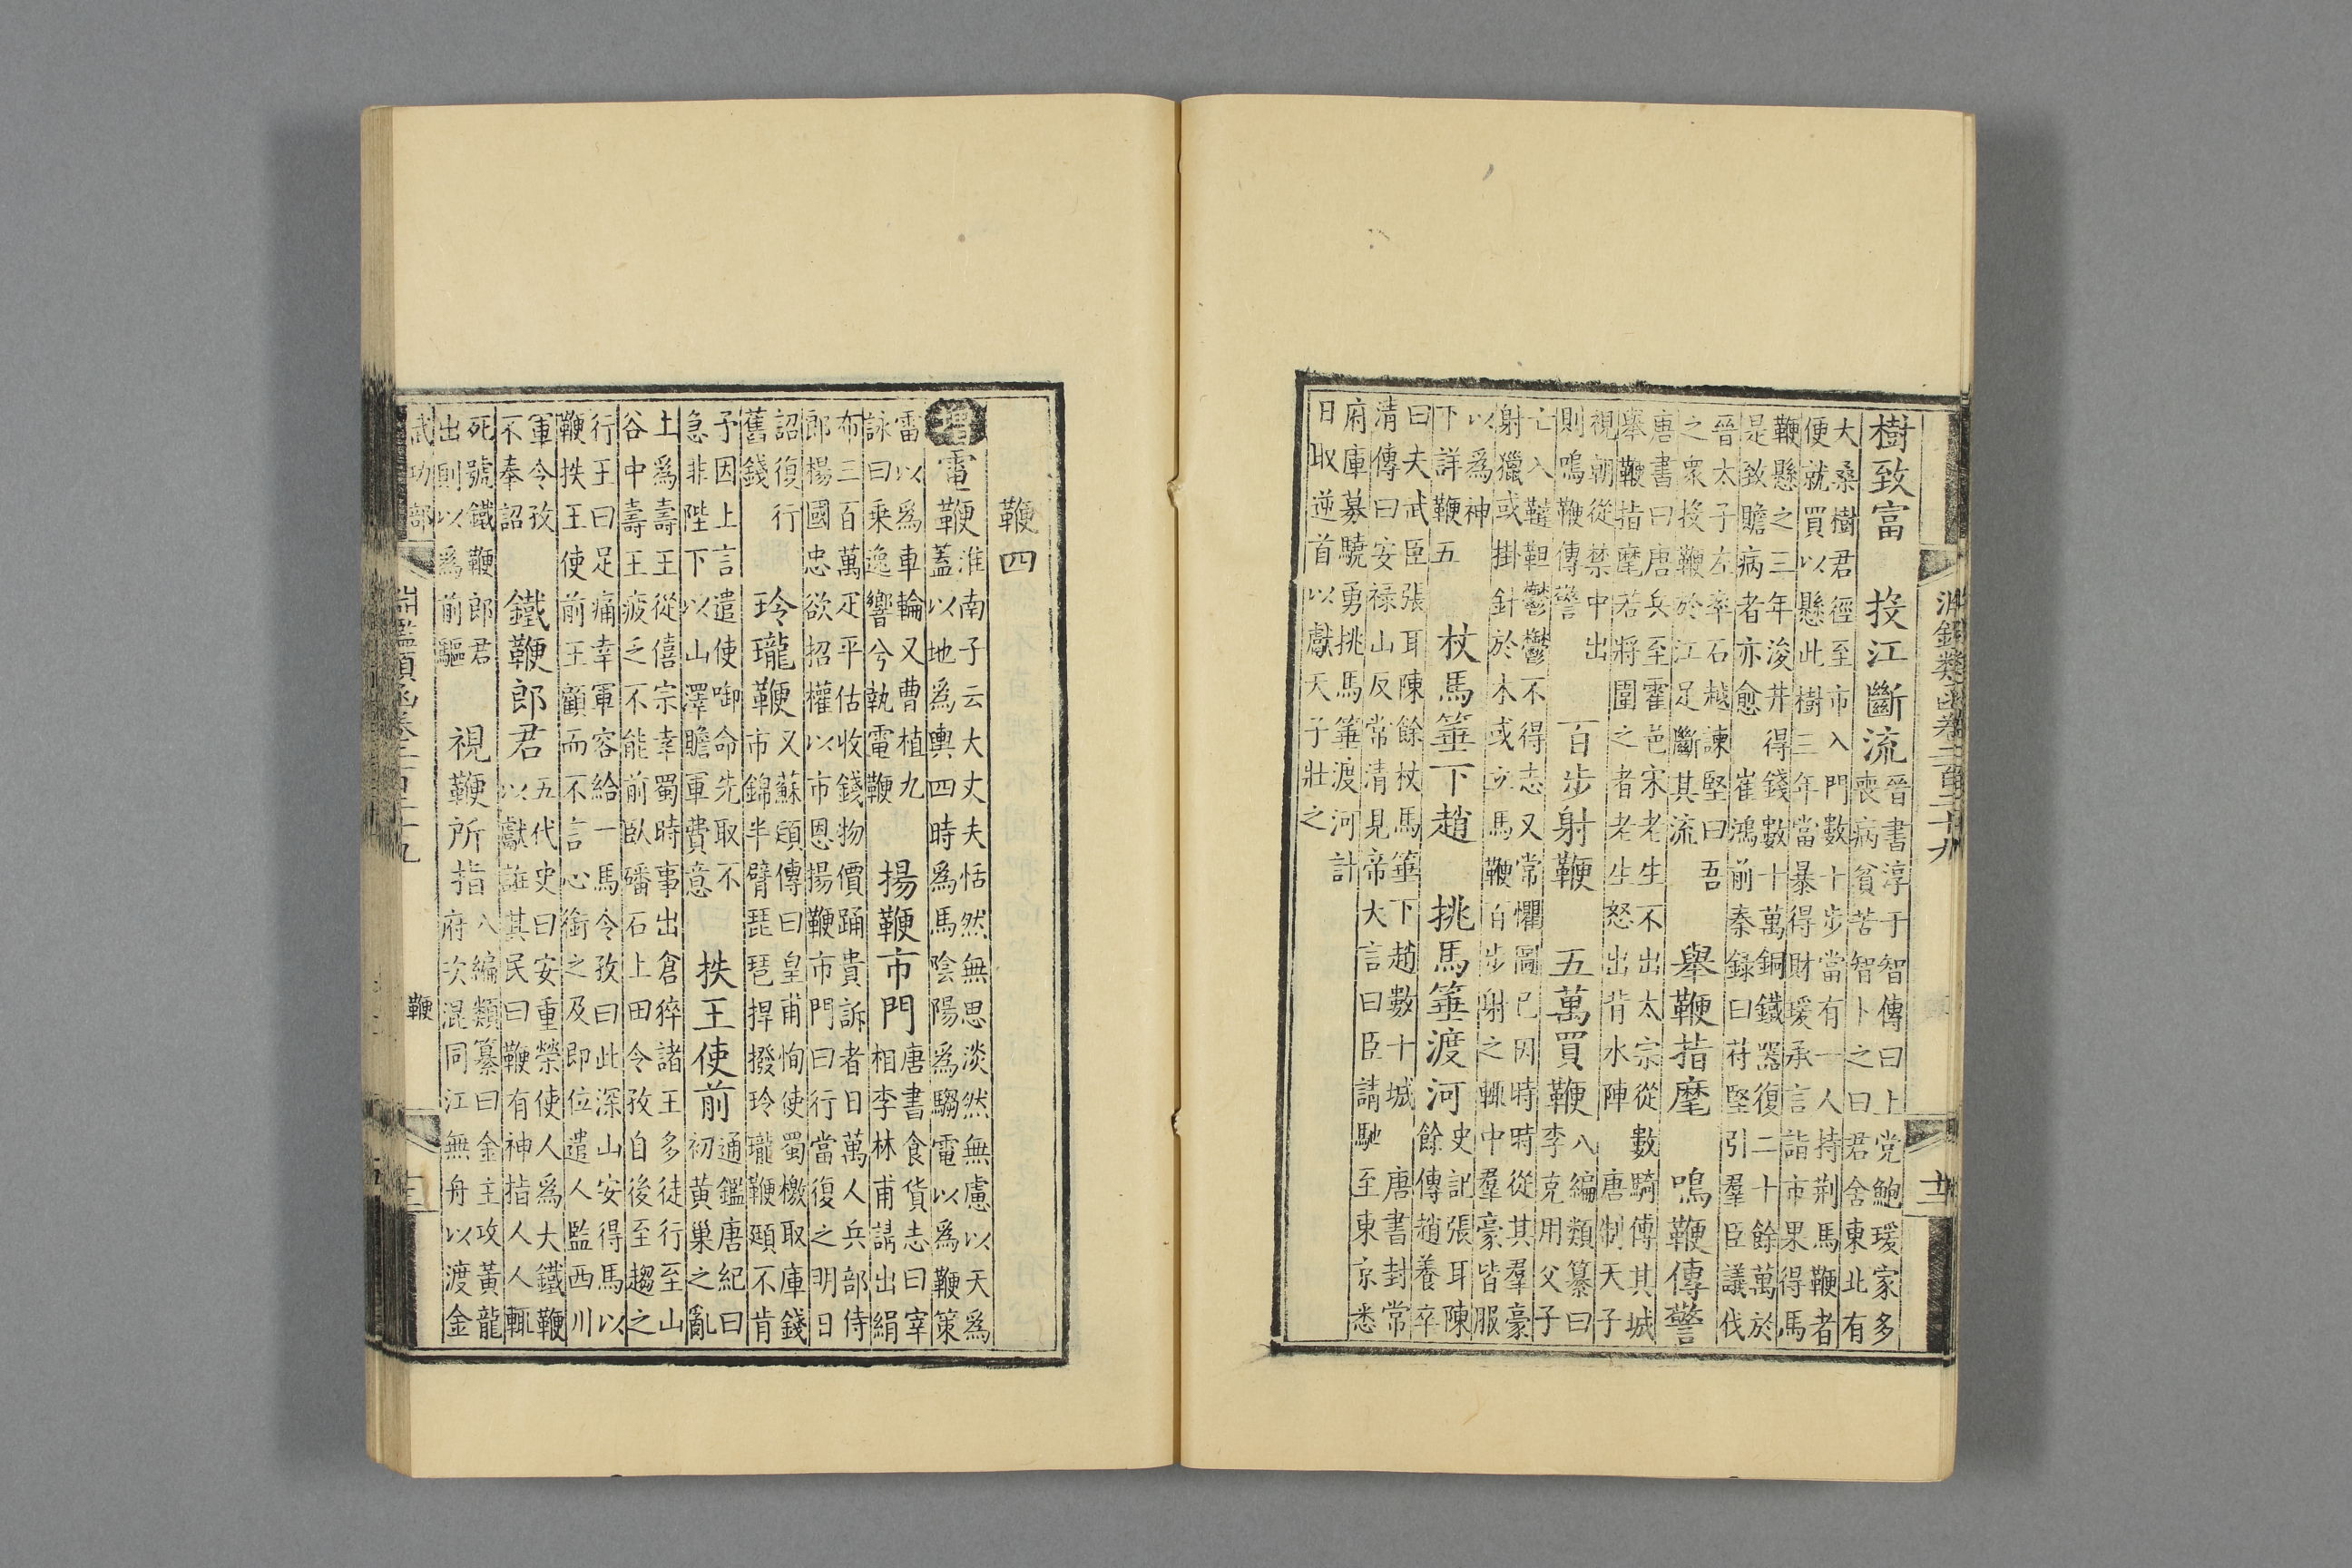 淵鑑類函卷二百二十九
樹致富　投江斷流晉書淳于智傳曰上党鮑瑗家多
喪病貧苦智卜之曰君舍東北有
大桑樹君徑至市入門數十步當有一人持荆馬鞭者
便就買以懸此樹三年當暴得財瑗承言詣市果得馬
鞭懸之三年浚井得錢數十萬銅鐵器復二十餘萬於
是致贍病者亦愈　崔鴻前秦錄曰苻堅引羣臣議伐
晉太子左率石越諫堅曰吾
之衆投鞭於江足斷其流　舉鞭指麾　鳴鞭傳警
唐書曰唐兵至霍邑宋老生不出太宗從數騎傅其城
舉鞭指麾若將圍之者老生怒出背水陣　唐制天子
視朝從禁中出
則鳴鞭傳警　百步射鞭　五萬買鞭八編類纂曰
李克用父子
亡入韃靼鬱鬱不得志又常懼圖已因時時從其羣豪
射獵或掛針於木或立馬鞭百步射之輒中羣豪皆服
以爲神
下詳鞭五　杖馬箠下趙　挑馬箠渡河史記張耳陳
餘傳趙養卒
曰夫武臣張耳陳餘杖馬箠下趙數十城　唐書封常
清傳曰安祿山反常清見帝大言曰臣請馳至東京悉
府庫募驍勇挑馬箠渡河計
日取逆首以獻天子壯之
鞭四
增電鞭淮南子云大丈夫恬然無思淡然無慮以天爲
蓋以地爲輿四時爲馬陰陽爲騶電以爲鞭策
雷以爲車輪又曹植九
詠曰乘逸響兮執電鞭　揚鞭市門唐書食貨志曰宰
相李林甫請出絹
布三百萬疋平估收錢物價踊貴訴者日萬人兵部侍
郎楊國忠欲招權以市恩揚鞭市門曰行當復之明日
詔復行
舊錢　玲瓏鞭又蘇頲傳曰皇甫恂使蜀檄取庫錢
市錦半臂琵琶捍撥玲瓏鞭頲不肯
予因上言遣使啣命先取不
急非陛下以山澤贍軍費意　抶王使前通鑑唐紀曰
初黃巢之亂
土爲壽王從僖宗幸蜀時事出倉猝諸王多徒行至山
谷中壽王疲乏不能前臥磻石上田令孜自後至趨之
行王曰足痛幸軍容給一馬令孜曰此深山安得馬以
鞭抶王使前王顧而不言心銜之及即位遣人監西川
軍令孜
不奉詔　鐵鞭郎君五代史曰安重榮使人爲大鐵鞭
以獻誑其民曰鞭有神指人人輒
死號鐵鞭郎君
出則以爲前驅　視鞭所指八編類纂曰金主攻黃龍
府次混同江無舟以渡金
武功部
淵鑑類函卷二百二十九
鞭